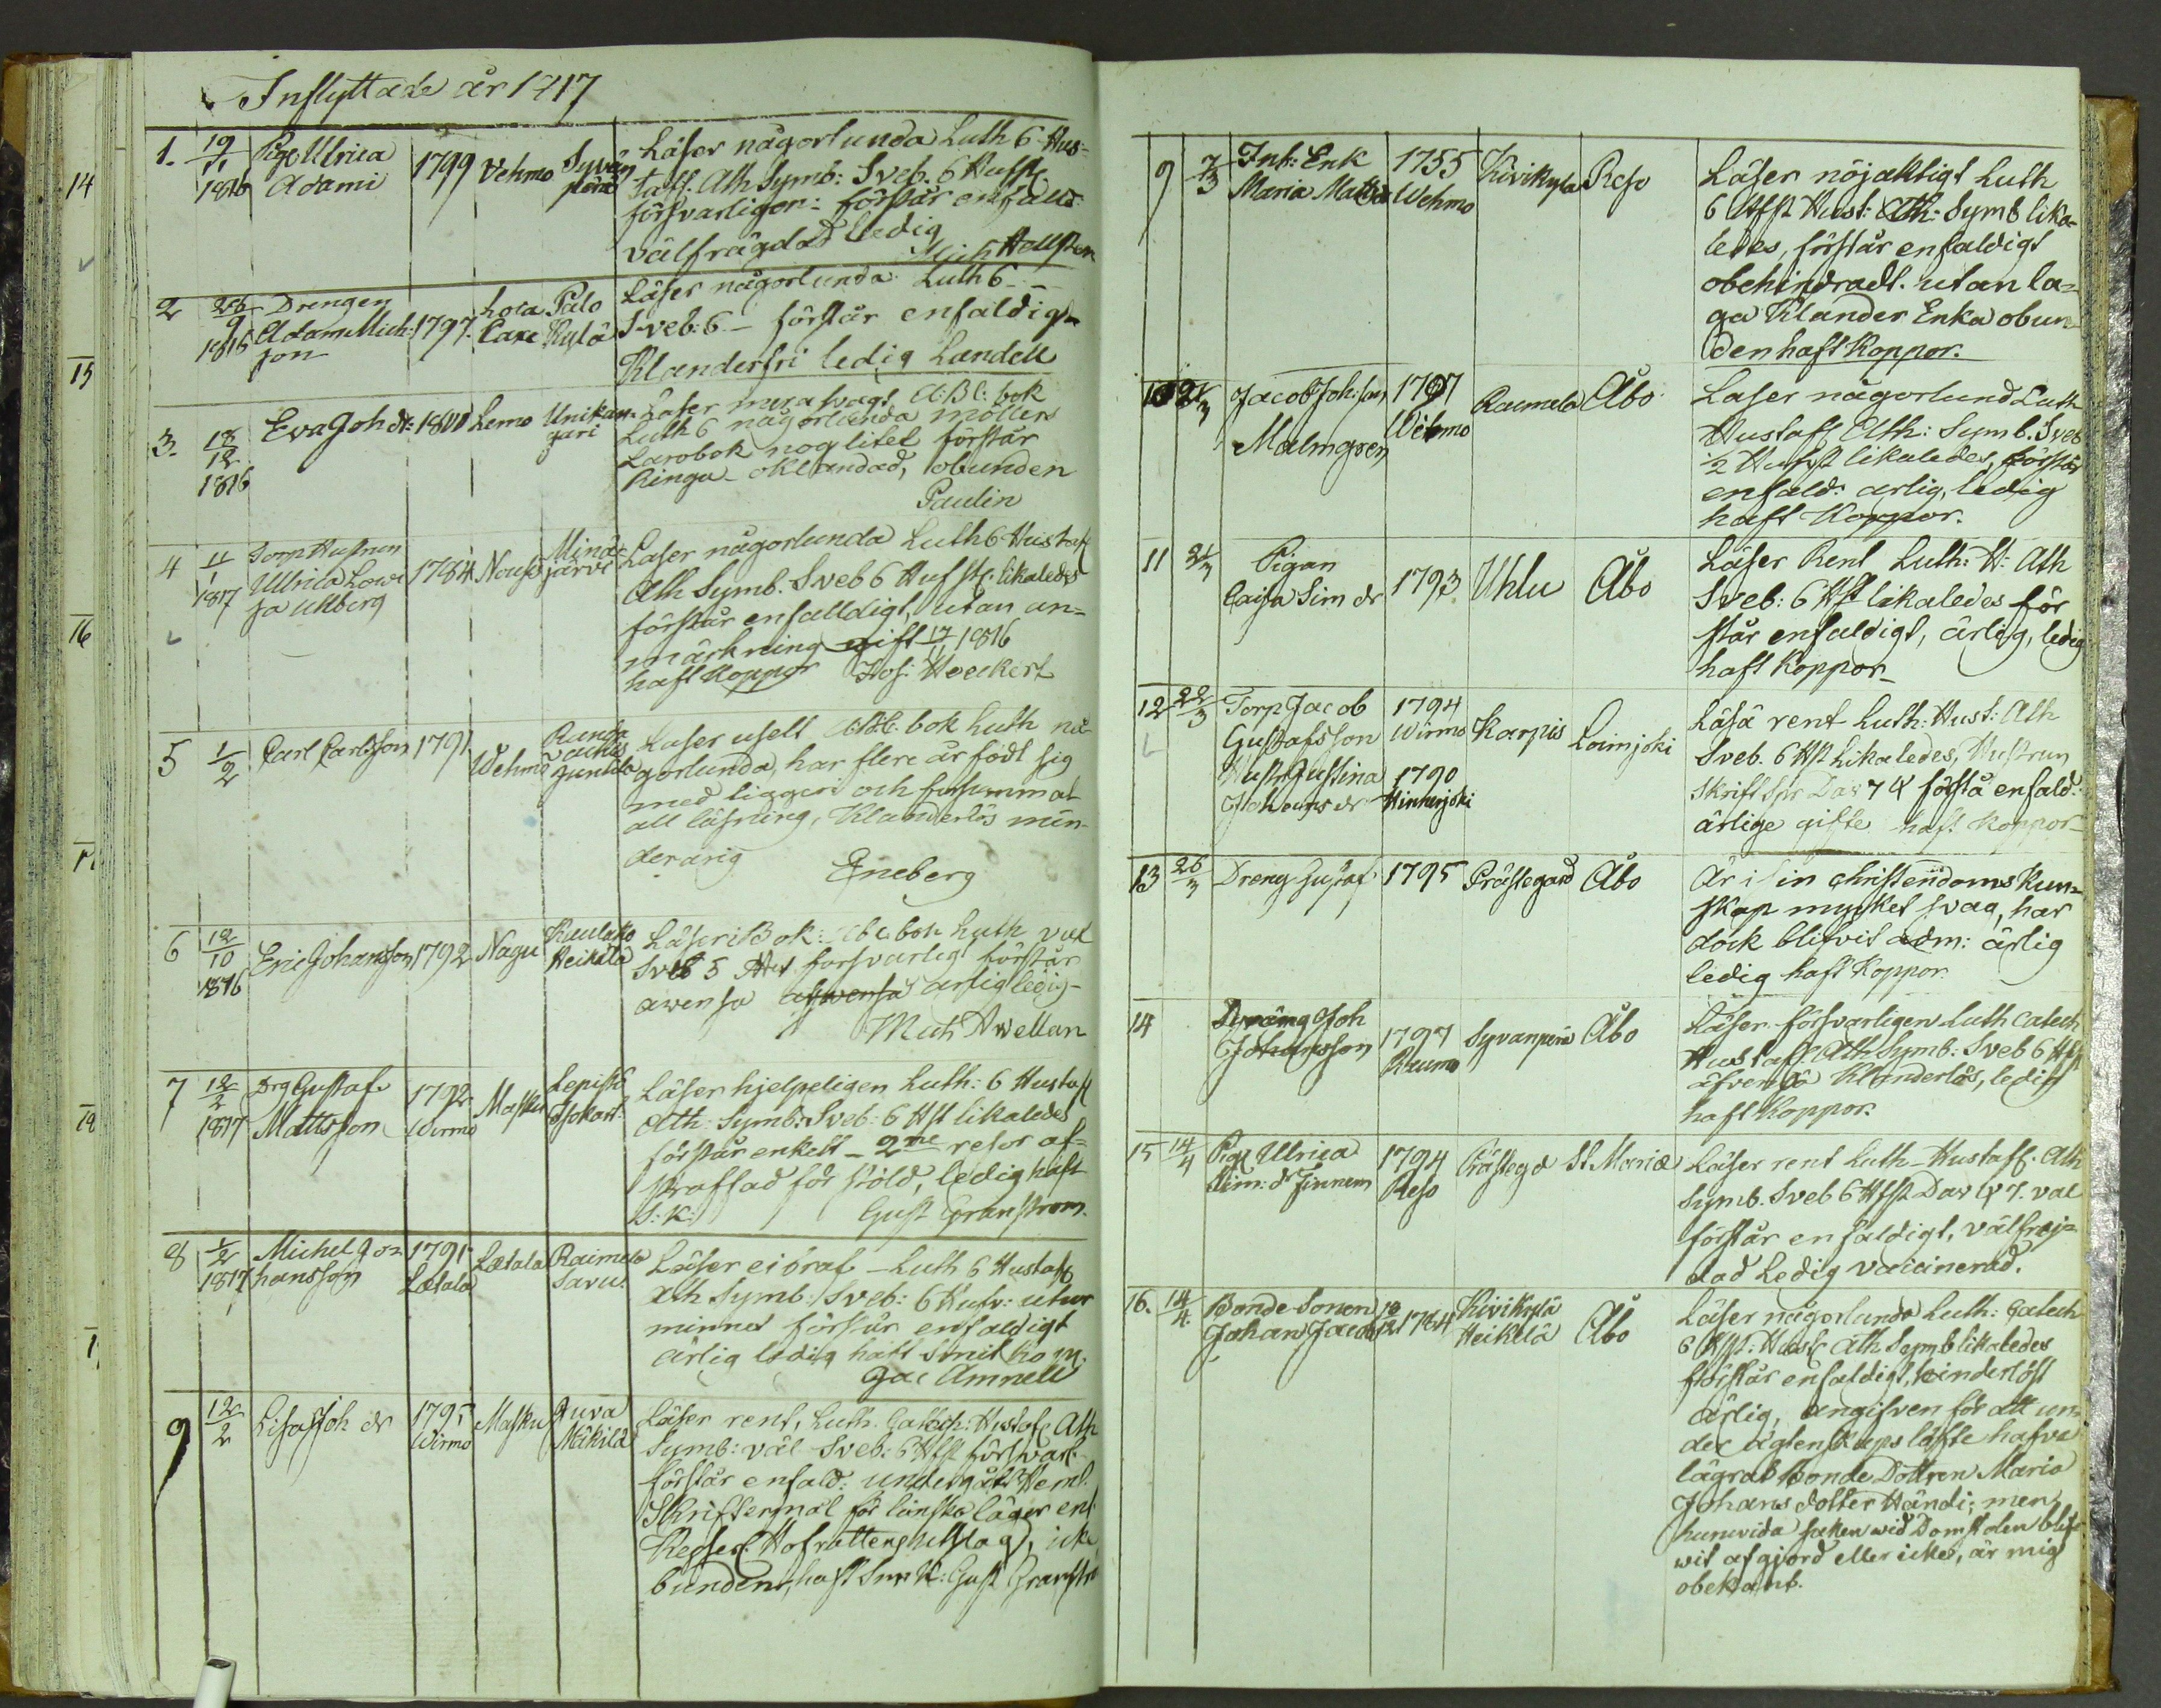 Inflyttade år 1817
14
15
16
1. 19/11 1816 Pig Ulrica Adami 1799 Vehmo Syvänperä
Läser någorlunda Luth 6 Hus=
tafl. Ath Symb: Sveb. 6 Hufst.
försvarligen: förstår enfald
välfrägdad ledig
Mich Hellsten
2 1816 Drengen Adam Mich:son 1797. Palo Kylä
Läser någorlunda Luth 6 -
Sveb: 6 - förstår enfaldig-
Klanderfri ledig Landell
3. 18/12 1816 Eva Joh dr: Lemo
Läser mera svagt A:B:C: bok
Luth 6 någorlunda möllers
Lärobok nog litet förstår
Ringa - oklandad, obunden
Paulin
4 11/1 1817 Torp Hustrun Ulrica Lowisa Ullberg 1784 Nousis Minäjärvi
Läser någorlunda Luth 6 Hustafl
Ath Symb. Sveb 6 Hufst. likaledes
förstår enfalldigt, utan an=
märkning gift 17/11 1816
haft Koppor Hos: Hoeckert
5 1/2 Carl Carlsson 1791 Wehmo Juntila
Läser uselt ABC. bok Luth nå=
gorlunda, har flere år födt sig
med tiggeri och försummat
all läsning, Klanderlös min-
derårig
Eneberg
6 12/10 1816 Eric Johansson 1792 Nagu Heikilä
Läser i Bok: Abc bok Luth väl
Sveb 5 Hust försvarligt förstår
äwen så äfwenså ärlig ledig-
Mich Awellan
7 12/2 1817 Drg Gustaf Mattsson 1792 Wirmo Masku Lepistö
Läser hjelpeligen Luth: 6 Hustafl
Ath: Symb: Sveb: 6 Hst likaledes
förstår enkelt - 2ne resor af=
straffad för stöld, ledig haft
S: K: Gust Granstrom.
8 1/2 1817 Michel Johansson 1791 Letala Letala Raimela
Läser ei braf - Luth 6 Hustafl
Ath Symb: Sveb: 6 Hufv: utur
minnet förstår enfaldigt
ärlig ledig haft
Jac Amnell
9 12/2 Lisa Joh dr 1795 Wirmo Masku Mäkilä
Läser rent, Luth. Catech: Hustafl Ath
Symb: väl Sveb: 6 Hst försvarl.
förstår enfald: undergått Heml.
Skriftermål för lönska läger enl.
Kejserl. Hofrättens utslag, icke
bunden, haft Sm: K: Gust Granstr
9 7/3 Inh: Enk Maria Matts dr 1755 Wehmo Kivikyla Reso
Läser nöjaktigt Luth
6 Hfst Hust: Ath: Symb lika=
ledes, förstår enfaldigt
obehindradt. utan la=
ga Klander Enka obun=
den haft Koppor.
10 21/3 Jacob Joh:son Malmgren 1797 Wehmo Raumala Åbo
Läser någorlund Luth
Hustafl Ath: Symb. Sveb
1/2 Hufst likaledes, förstår
enfald: ärlig, ledig
haft Koppor.
11 21/3 Pigan Caisa Sim dr 1793 Uhlu Åbo
Läser Rent Luth: H: Ath
Sveb: 6 Hst likaledes för
står enfaldigt, ärlig, ledig
haft Koppor-
12 22/3 Torp Jacob Gustafsson 1794 Wirmo Karpis Loimjoki
Hustr Justina Johans dr 1790 Hinnerjoki
Läsa rent Luth: Hust: Ath
Sveb. 6 Hst Likaledes, Hustrun
Skrift Spr Dav 7 Ψ förstå enfald:
ärlige gifte haft Koppor-
13 26/3 Dreng Gustaf 1795 Prästegård Åbo
Är i sin christendoms Kun=
skap mycket svag, har
dock blifvit adm: ärlig
ledig haft Koppor.
14 Dräng Joh Johansson 1797 Raumo Syvanperä Åbo
Läser försvarligen Luth Catech
Hustafl Ath Symb: Sveb 6 Hfst
äfven så Klanderlös, ledig
haft Koppor.
15 14/4 Pig Ulrica Sim: dr 1794 Reso Prästegd St Mariæ
Läser rent Luth - Hustafl. Ath
Symb. Sveb 6 Hfst Dav Ψ 7. väl
förstår enfaldigt, välfrej=
dad Ledig vaccinerad.
16. 14/4 Bonde Sonen Johan Jacobs 1784 Kivikylä Heikilä Åbo
Läser någorlunda Luth: Catech
6 Hst: Hust Ath Symb likaledes
förstår enfaldigt, hinderlöst
ärlig, angifven för att un=
der ägtenskaps löfte hafva
lägrat bonde Dottren Maria
Johans dotter Händi; men
huruvida saken wid Domstolen blif
wit afgjord eller icke, är mig
obekant.